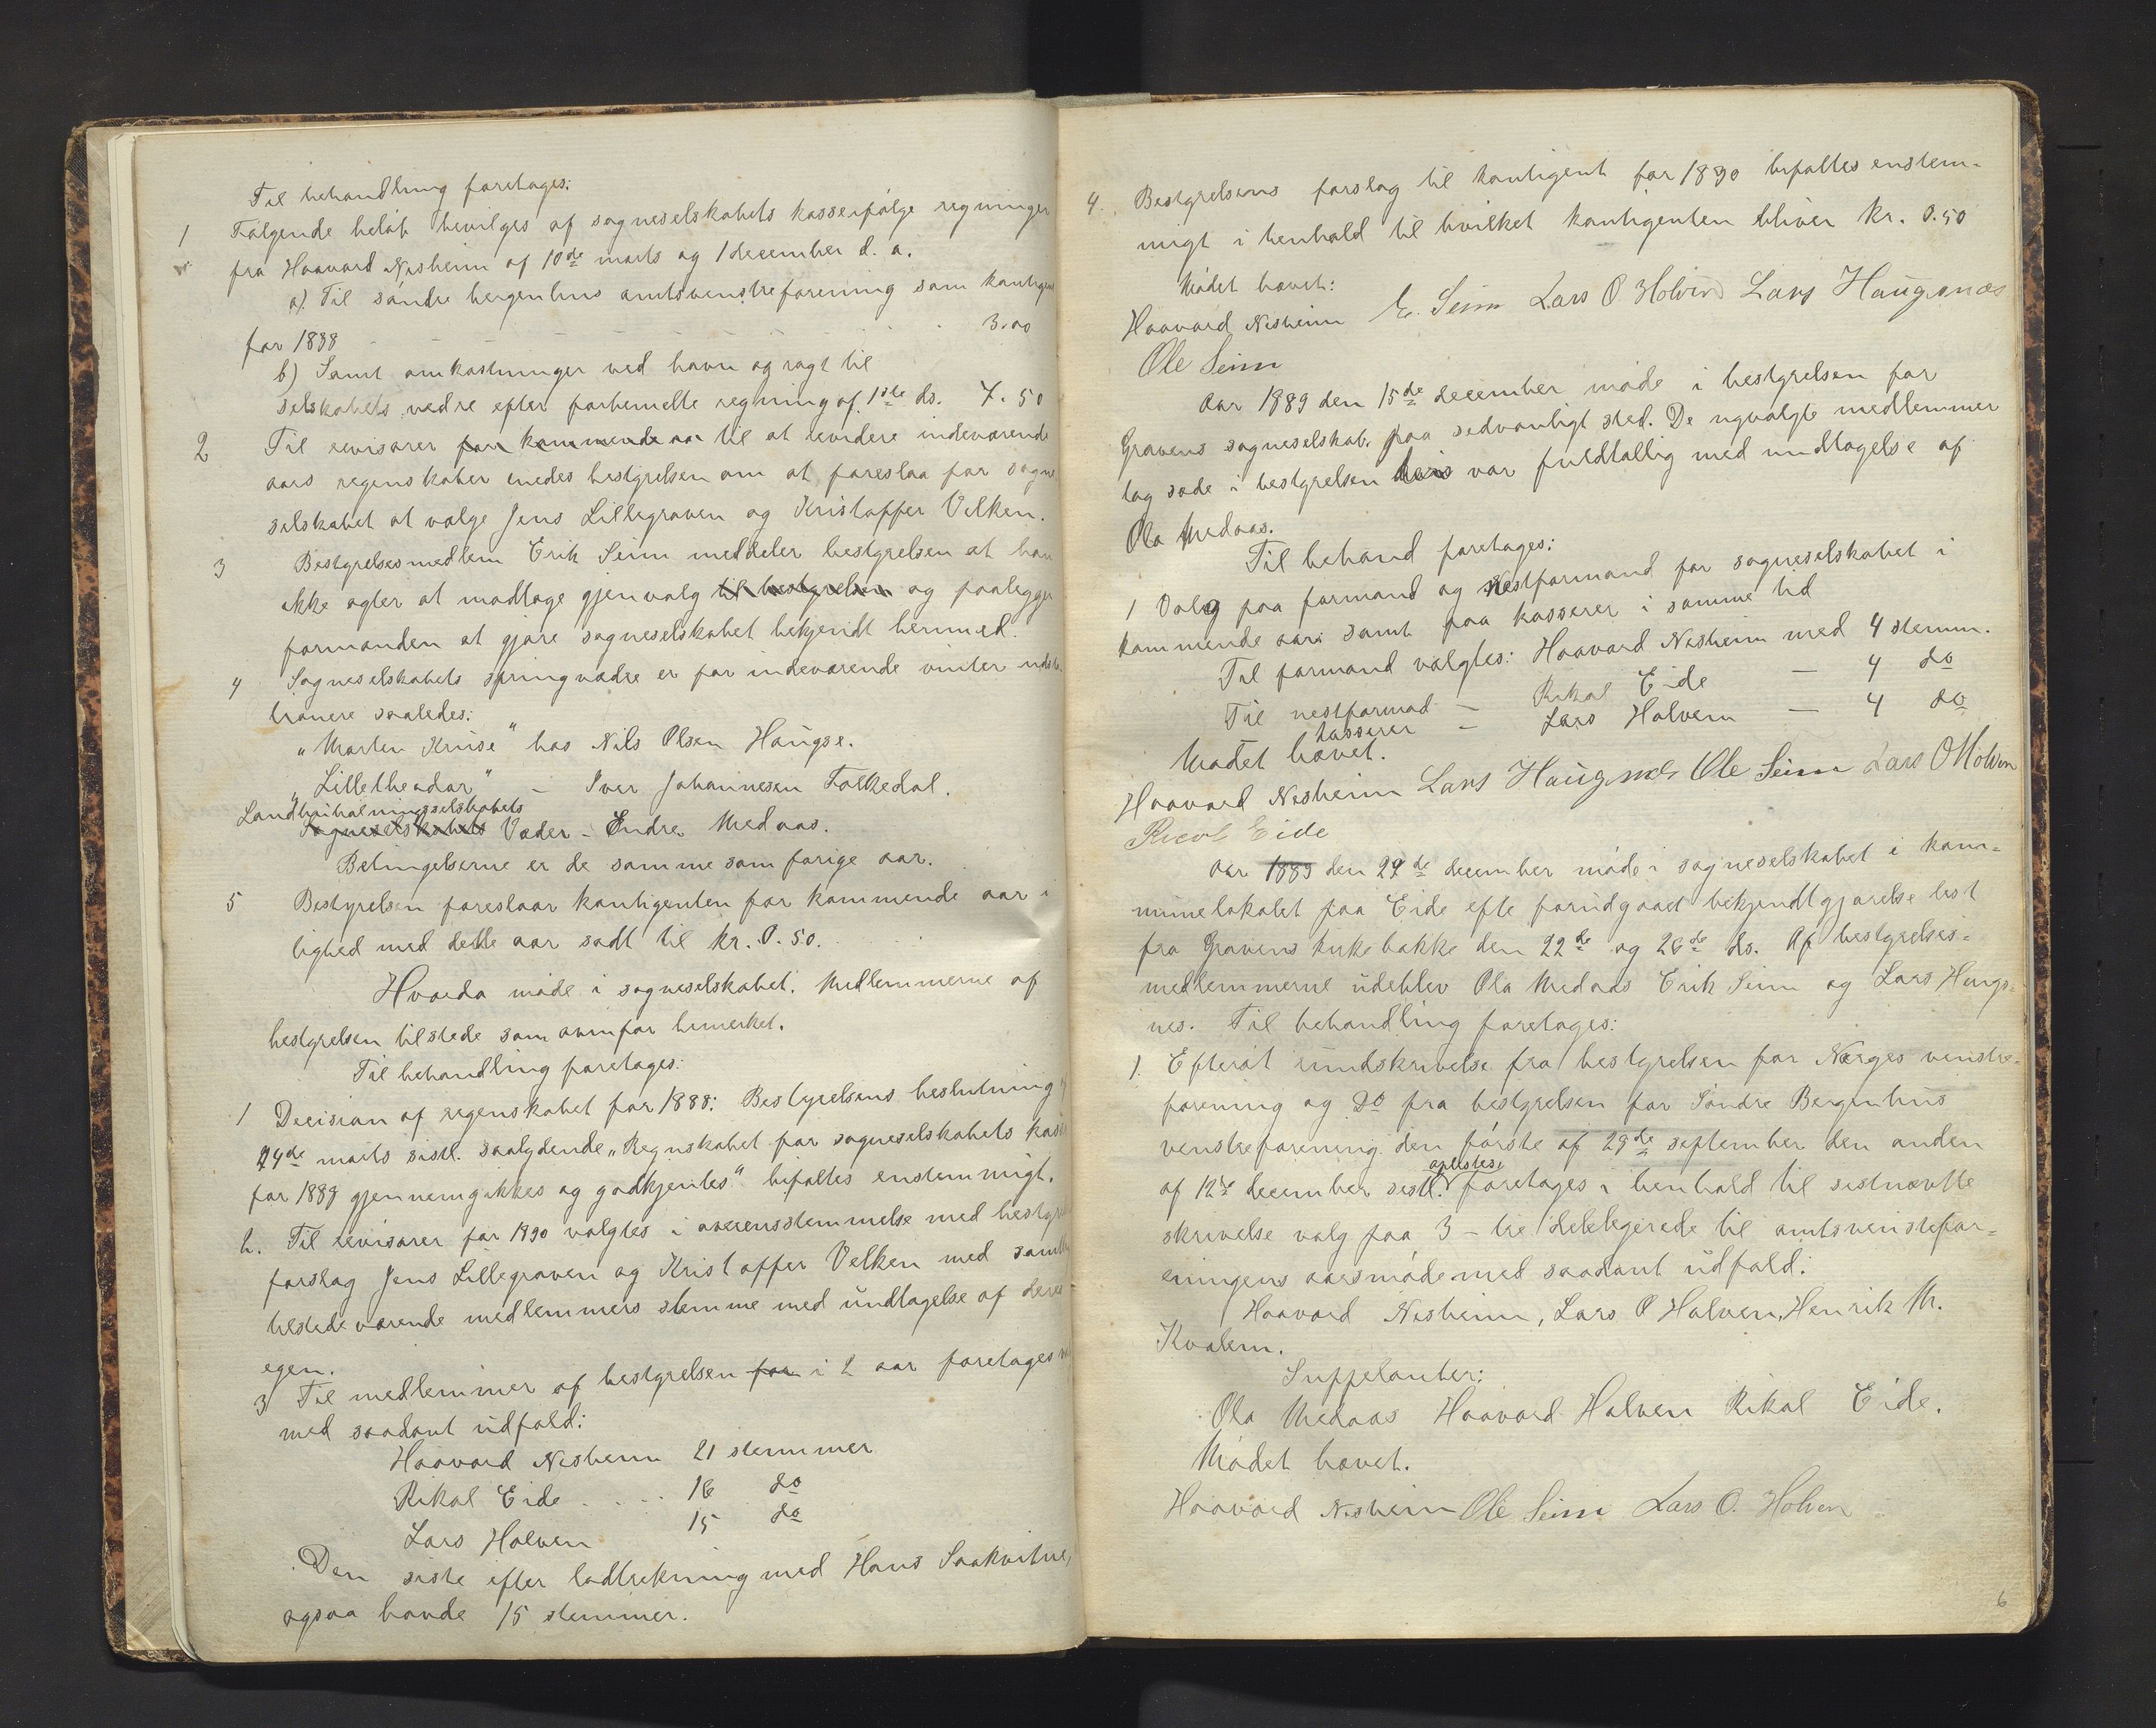 Til behandling foretages:
1 Følgende beløb bevilges af sogneselskabets kasse ifølge regninger
fra Haavard Nesheim af 10de marts og 1 december d. a.
a) Til søndre bergenhus amtsvenstreforening som kontigent
for 1888 3.00
b) Samt omkostninger ved havn og røgt til
selskabets vedre efter forhenvelte regning af 1ste ds. 7.50
2 Til revisorer for kommende aa til at revidere indeværende
aars regenskaber enedes bestyrelsen om at foreslaa for sogne
selskabet at vælge Jens Lillegraven og Kristoffer Velken.
3 Bestyrelsesmedlem Erik Seim meddeler bestyrelsen at han
ikke agter at modtage gjenvalg til bestyrelsen og paalegger
formanden at gjøre sogneselskabet bekjendt hermed.
4 Sogneselskabets springvædre er for indeværende vinter udsta
tionere saaledes:
"Morten Kruse" hos Nils Olsen Haugse.
"Lilletheodor" - Iver Johannesen Folkedal.
Landhusholningsselskabets
Sogneselskabets Væder - Endre Medaas.
Betingelserne er de samme som forige aar.
5 Bestyrelsen foreslaar kontigenten for kommende aar i
lighed med dette aar sadt til kr. 0.50.
Hvorda møde i sogneselskabet. Medlemmerne af
bestyrelsen tilstede som ovenfor bemerket.
Til behandling foretages:
1 Decision af regenskabet for 1888: Bestyrelsens beslutning
24de marts sistl. saalydende "Regnskabet for sogneselskabets kasse
for 1888 gjennemgikkes og godkjentes" bifaltes enstemmigt.
2. Til revisorer for 1890 valgtes i overensstemmelse med bestyr
forslag Jens Lillegraven og Kristoffer Velken med samtl
tilstedeværende medlemmers stemme med undtagelse af deres
egen.
3 Til medlemmer af bestyrelsen for i 2 aar foretages
med saadant udfald:
Haavard Nesheim 21 stemmer
Rikol Eide 16 do
Lars Holven 15 do
Den siste efter lodtrekning med Hans Saakvitne,
ogsaa havde 15 stemmer.
4. Bestyrelsens forslag til kontigent for 1890 bifaltes enstem-
migt i henhold til hvilket kontigenten bliver kr. 0.50
Mødet hævet:
Haavard Nesheim E. Seim Lars O Holven Lars Haugsnæs
Ole Seim
Aar 1889 den 15de december møde i bestyrelsen for
Gravens sogneselskab paa sedvanligt sted. De nyvalgte medlemmer
tog sæde i bestyrelsen var fuldtallig med undtagelse af
Ola Medaas.
Til behand foretages:
1 Valg paa formand og Nestformand for sogneselskabet i
kommende aar samt paa kasserer i samme tid
Til formand valgtes: Haavard Nesheim med 4 stemm.
Til nestformad - Rikol Eide - 4 do
kasserer - Lars Holven - 4 do
Mødet hævet.
Haavard Nesheim Lars Haugsnes Ole Seim Lars O Holven
Ricol Eide
Aar 1889 den 29de december møde i sogneselskabet i kom-
munelokalet paa Eide efte forudgaaet bekjendtgjørelse lest
fra Gravens kirkebakke den 22de og 26de ds. Af bestyrelses-
medlemmerne udeblev Ola Medaas Erik Seim og Lars Haugs-
nes. Til behandling foretages:
1. Efterat rundskrivelse fra bestyrelsen for Norges venstre-
forening og do fra bestyrelsen for Søndre Bergenhus
venstreforening den første af 29de september den anden
af 12te december sistl. oplestes foretages i henhold til sistnævte
skrivelse valg paa 3 - tre delelegerede til amtsvenstefor-
eningens aarsmøde med saadant udfald:
Haavard Nesheim, Lars O Holven, Henrik M.
Kvalem.
Suppelanter:
Ola Medaas Haavard Holven Rikol Eide.
Mødet hævet.
Haavard Nesheim Ole Seim Lars O. Holven
6